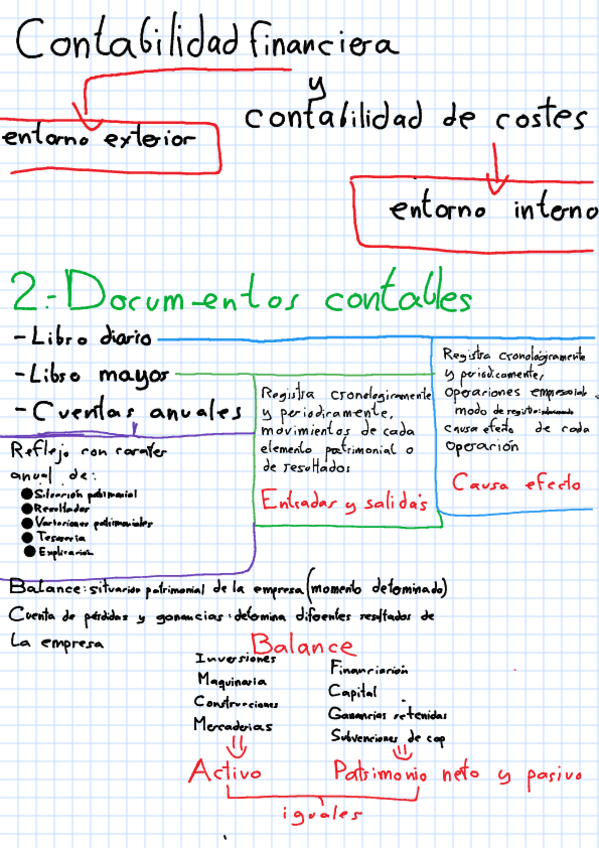 Contabilidad financiera
y
contabilidad de costes
entorno exterior
entorno interno
2.- Documentos contables
- Libro diario
- Libro mayor
- Cuentas anuales
Registra cronológicamente
y periódicamente,
operaciones empresariales
modo de registro:
causa efecto de cada
operación
Causa efecto
Registra cronologicamente
y periodicamente,
movimientos de cada
elemento patrimonial o
de resultados
Entradas y salidas
Reflejo con carater
anual de:
● Situación patrimonial
● Resultados
● Variaciones patrimoniales
● Tesoreria
● Explicación
Balance: situación patrimonial de la empresa (momento determinado)
Cuenta de pérdidas y ganancias: detomina difoentes resultados de
la empresa
Balance
Inversiones
Maquinaria
Construcciones
Mercaderias
Activo
Financiación
Capital
Ganancias retenidas
Subvenciones de cap
Patrimonio neto y pasivo
iguales